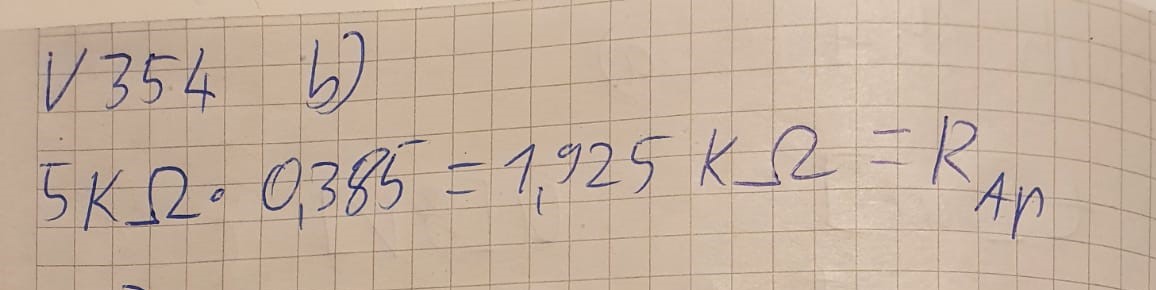 V 354 b)
5KΩ · 0,385 = 1,925 KΩ = R_Ap